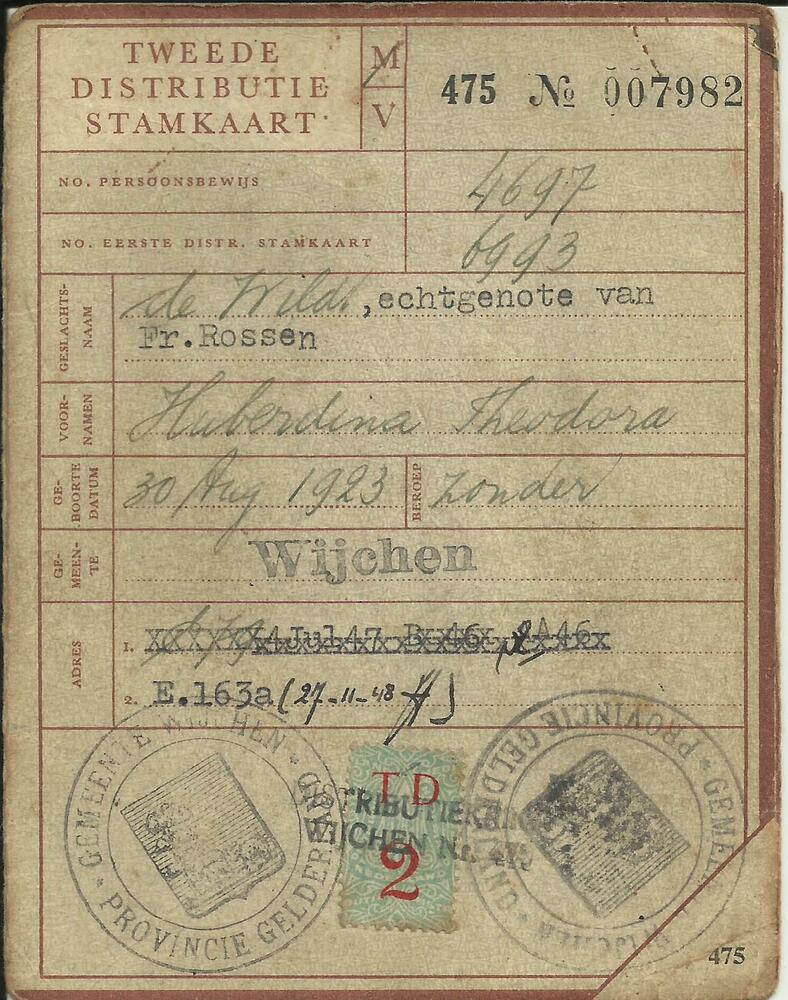 TWEEDE
DISTRIBUTIE
STAMKAART
M
V
475 № 007982
NO. PERSOONSBEWIJS
4697
NO. EERSTE DISTR. STAMKAART
6993
GESLACHTS-
NAAM
de Wildt, echtgenote van
Fr.Rossen
VOOR-
NAMEN
Huberdina Theodora
GE-
BOORTE
DATUM
30 Aug 1923
BEROEP
zonder
GE-
MEEN-
TE
Wijchen
ADRES
1. 4 Jul 47 B 46 A46
2. E.163a (27-11-48)
GEMEENTE WIJCHEN
PROVINCIE GELDERLAND
TD
2
DISTRIBUTIEKRING
WIJCHEN Nr. 475
GEMEENTE WIJCHEN
PROVINCIE GELDERLAND
475